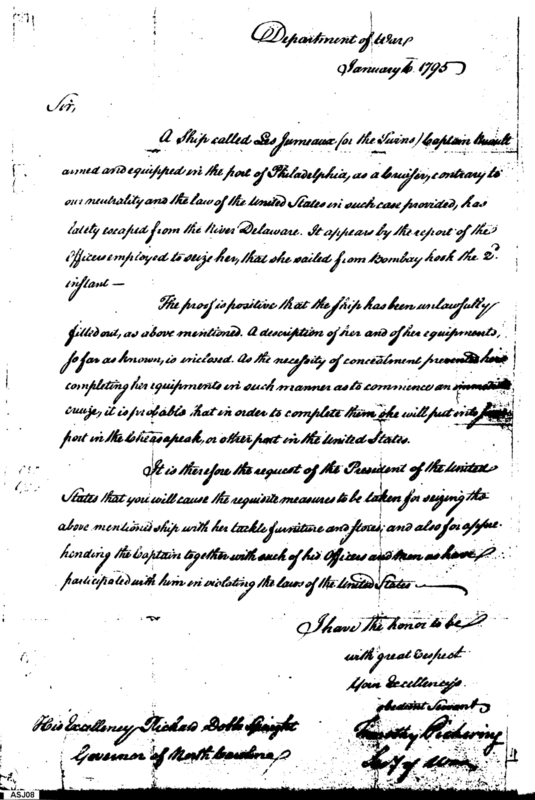 Department of War
January 1795
Sir,
A Ship called Les Jumeaux (or the Twins) Captain
armed and equipped in the port of Philadelphia, as a Cruiser, contrary to
our neutrality and the law of the United States in such case provided, has
lately escaped from the River Delaware. It appears by the report of the
Officers employed to seize her, that she sailed from Bombay hook the 2d.
instant —
The proof is positive that the ship has been unlawfully
fitted out, as above mentioned. A description of her and of her equipments,
so far as known, is enclosed. As the necessity of concealment prevented her
completing her equipments in such manner as to commence an immediate
cruize, it is probable that in order to complete them she will put into some
port in the Chesapeak, or other port in the United States.
It is therefore the request of the President of the United
States that you will cause the requisite measures to be taken for seizing the
above mentioned ship with her tackle furniture and stores; and also for appre-
hending the Captain together with such of his Officers and men as have
participated with him in violating the laws of the United States
I have the honor to be
with great respect
Your Excellency's
obedient Servant
Timothy Pickering
Secy of War
His Excellency Richard Dobbs Spaight
Governor of North Carolina
ASJ08